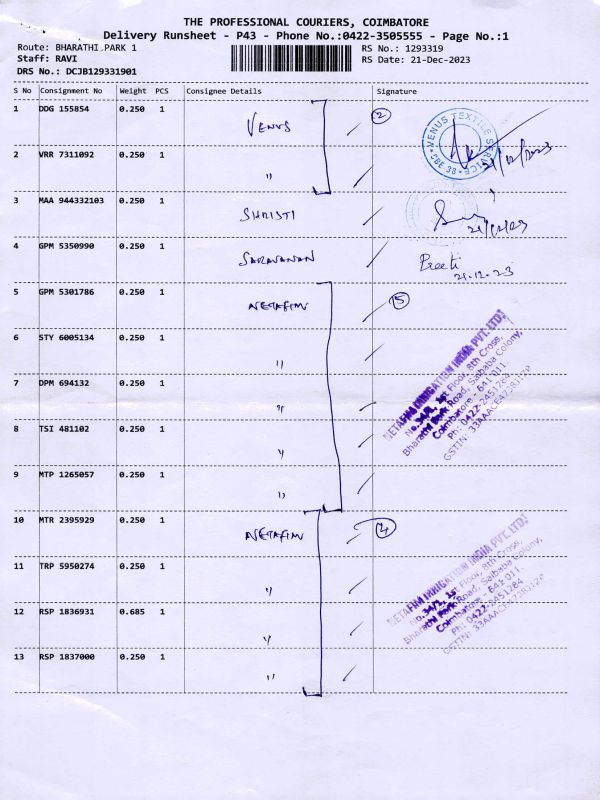 THE PROFESSIONAL COURIERS, COIMBATORE
Delivery Runsheet - P43 - Phone No.:0422-3505555 - Page No.:1
Route: BHARATHI PARK 1 RS No.: 1293319
Staff: RAVI RS Date: 21-Dec-2023
DRS No.: DCJB129331901
S No Consignment No Weight PCS Consignee Details Signature
1 DDG 155854 0.250 1 VENUS 2
VENUS TEXTILE SERVICE * CBE 38 *
21/12/2023
2 VRR 7311092 0.250 1 "
3 MAA 944332103 0.250 1 SHRISTI
21/12/23
4 GPM 5350990 0.250 1 SARAVANAN Preeti
21.12.23
5 GPM 5301786 0.250 1 NETAFIM 5
6 STY 6005134 0.250 1 "
7 DPM 694132 0.250 1 "
8 TSI 481102 0.250 1 "
9 MTP 1265057 0.250 1 "
NETAFIM IRRIGATION INDIA PVT. LTD.
No.34/1, 1st Floor, 8th Cross,
Bharathi Park Road, Saibaba Colony,
Coimbatore - 641 011.
Ph: 0422-2451284
10 MTR 2395929 0.250 1 NETAFIM 4
11 TRP 5950274 0.250 1 "
12 RSP 1836931 0.685 1 "
13 RSP 1837000 0.250 1 "
NETAFIM IRRIGATION INDIA PVT. LTD.
No.34/1, 1st Floor, 8th Cross,
Bharathi Park Road, Saibaba Colony,
Coimbatore - 641 011.
Ph: 0422-2451284